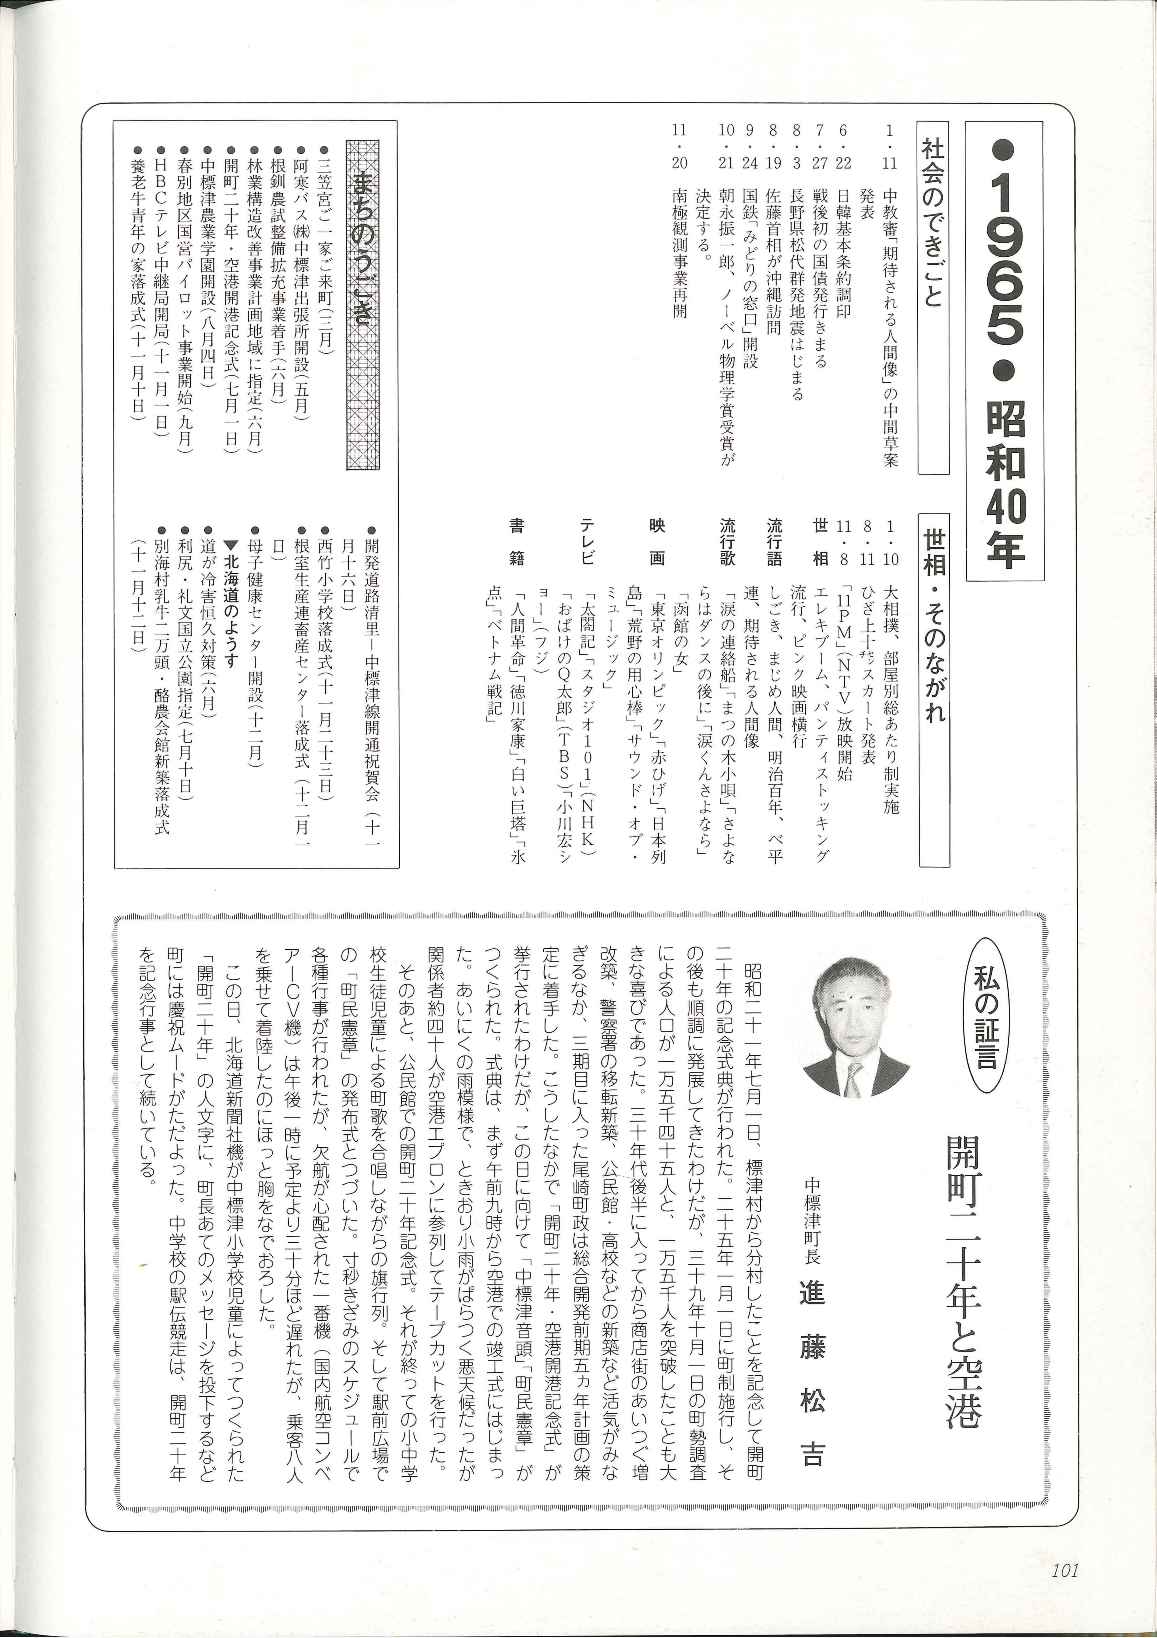 ●1965・昭和40年
社会のできごと
1・11 中教審「期待される人間像」の中間草案
発表
6・22 日韓基本条約調印
7・27 戦後初の国債発行きまる
8・3 長野県松代群発地震はじまる
8・19 佐藤首相が沖縄訪問
9・24 国鉄「みどりの窓口」開設
10・21 朝永振一郎、ノーベル物理学賞受賞が
決定する。
11・20 南極観測事業再開
世相・そのながれ
1・10 大相撲、部屋別総あたり制実施
8・11 ひざ上十㌢スカート発表
11・8 「11PM」(NTV)放映開始
世相 エレキブーム、パンティストッキング
流行、ピンク映画横行
流行語 しごき、まじめ人間、明治百年、べ平
連、期待される人間像
流行歌 「涙の連絡船」「まつの木小唄」「さよな
らはダンスの後に」「涙くんさよなら」
「函館の女」
映画 「東京オリンピック」「赤ひげ」「日本列
島」「荒野の用心棒」「サウンド・オブ・
ミュージック」
テレビ 「太閤記」「スタジオ101」(NHK)
「おばけのQ太郎」(TBS)「小川宏シ
ョー」(フジ)
書籍 「人間革命」「徳川家康」「白い巨塔」「氷
点」「ベトナム戦記」
まちのうごき
●三笠宮ご一家ご来町(三月)
●阿寒バス㈱中標津出張所開設(五月)
●根釧農試整備拡充事業着手(六月)
●林業構造改善事業計画地域に指定(六月)
●開町二十年・空港開港記念式(七月一日)
●中標津農業学園開設(八月四日)
●春別地区国営パイロット事業開始(九月)
●HBCテレビ中継局開局(十一月一日)
●養老牛青年の家落成式(十一月十日)
●開発道路清里ー中標津線開通祝賀会(十一
月十六日)
●西竹小学校落成式(十一月二十三日)
●根室生産連畜産センター落成式(十二月一
日)
●母子健康センター開設(十二月)
▼北海道のようす
●道が冷害恒久対策(六月)
●利尻・礼文国立公園指定(七月十日)
●別海村乳牛二万頭・酪農会館新築落成式
(十一月十二日)
私の証言
開町二十年と空港
中標津町長 進藤松吉
昭和二十一年七月一日、標津村から分村したことを記念して開町
二十年の記念式典が行われた。二十五年一月一日に町制施行し、そ
の後も順調に発展してきたわけだが、三十九年十月一日の町勢調査
による人口が一万五千四十五人と、一万五千人を突破したことも大
きな喜びであった。三十年代後半に入ってから商店街のあいつぐ増
改築、警察署の移転新築、公民館・高校などの新築など活気がみな
ぎるなか、三期目に入った尾崎町政は総合開発前期五ヵ年計画の策
定に着手した。こうしたなかで「開町二十年・空港開港記念式」が
挙行されたわけだが、この日に向けて「中標津音頭」「町民憲章」が
つくられた。式典は、まず午前九時から空港での竣工式にはじまっ
た。あいにくの雨模様で、ときおり小雨がぱらつく悪天候だったが
関係者約四十人が空港エプロンに参列してテープカットを行った。
そのあと、公民館での開町二十年記念式。それが終っての小中学
校生徒児童による町歌を合唱しながらの旗行列。そして駅前広場で
の「町民憲章」の発布式とつづいた。寸秒きざみのスケジュールで
各種行事が行われたが、欠航が心配された一番機(国内航空コンベ
アーCV機)は午後一時に予定より三十分ほど遅れたが、乗客八人
を乗せて着陸したのにほっと胸をなでおろした。
この日、北海道新聞社機が中標津小学校児童によってつくられた
「開町二十年」の人文字に、町長あてのメッセージを投下するなど
町には慶祝ムードがただよった。中学校の駅伝競走は、開町二十年
を記念行事として続いている。
101